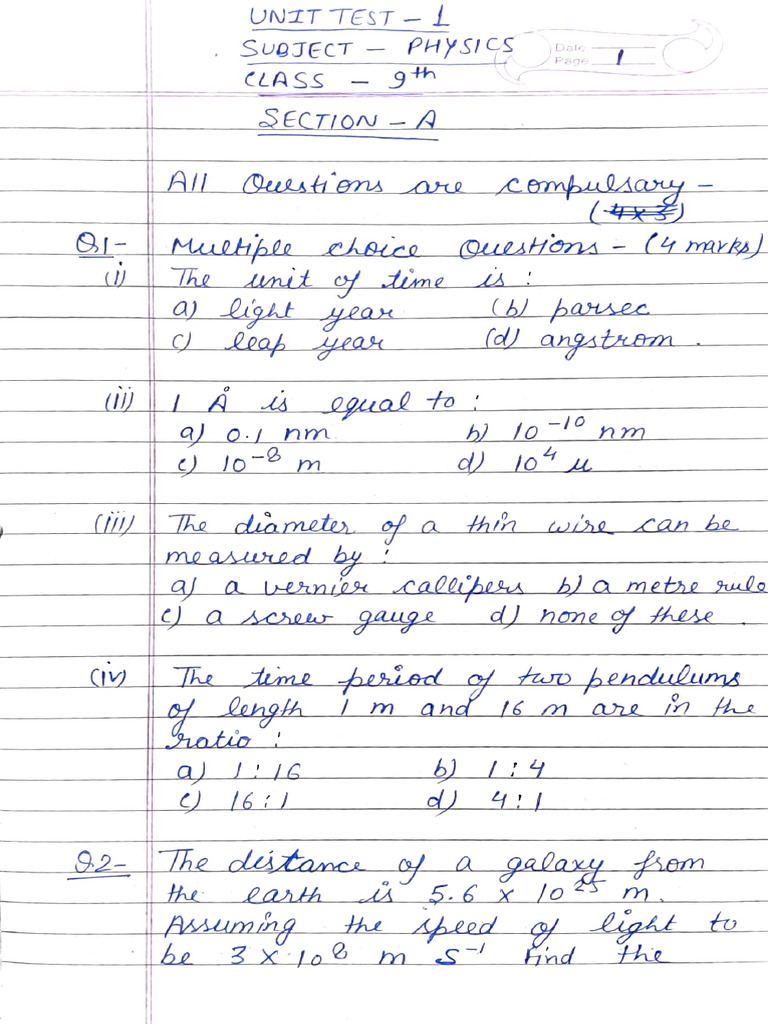 UNIT TEST - 1
SUBJECT - PHYSICS
Date
Page 1
CLASS - 9th
SECTION - A
All Questions are compulsary -
(4 x 3)
Q1- Multiple choice Questions - (4 marks)
(i) The unit of time is :
a) light year (b) parsec
c) leap year (d) angstrom .
(ii) 1 Å is equal to :
a) 0.1 nm b) 10⁻¹⁰ nm
c) 10⁻⁸ m d) 10⁴ μ
(iii) The diameter of a thin wire can be
measured by :
a) a vernier callipers b) a metre rule
c) a screw gauge d) none of these .
(iv) The time period of two pendulums
of length 1 m and 16 m are in the
ratio :
a) 1 : 16 b) 1 : 4
c) 16 : 1 d) 4 : 1
Q.2- The distance of a galaxy from
the earth is 5.6 x 10²⁵ m.
Assuming the speed of light to
be 3 x 10⁸ m s⁻¹ find the